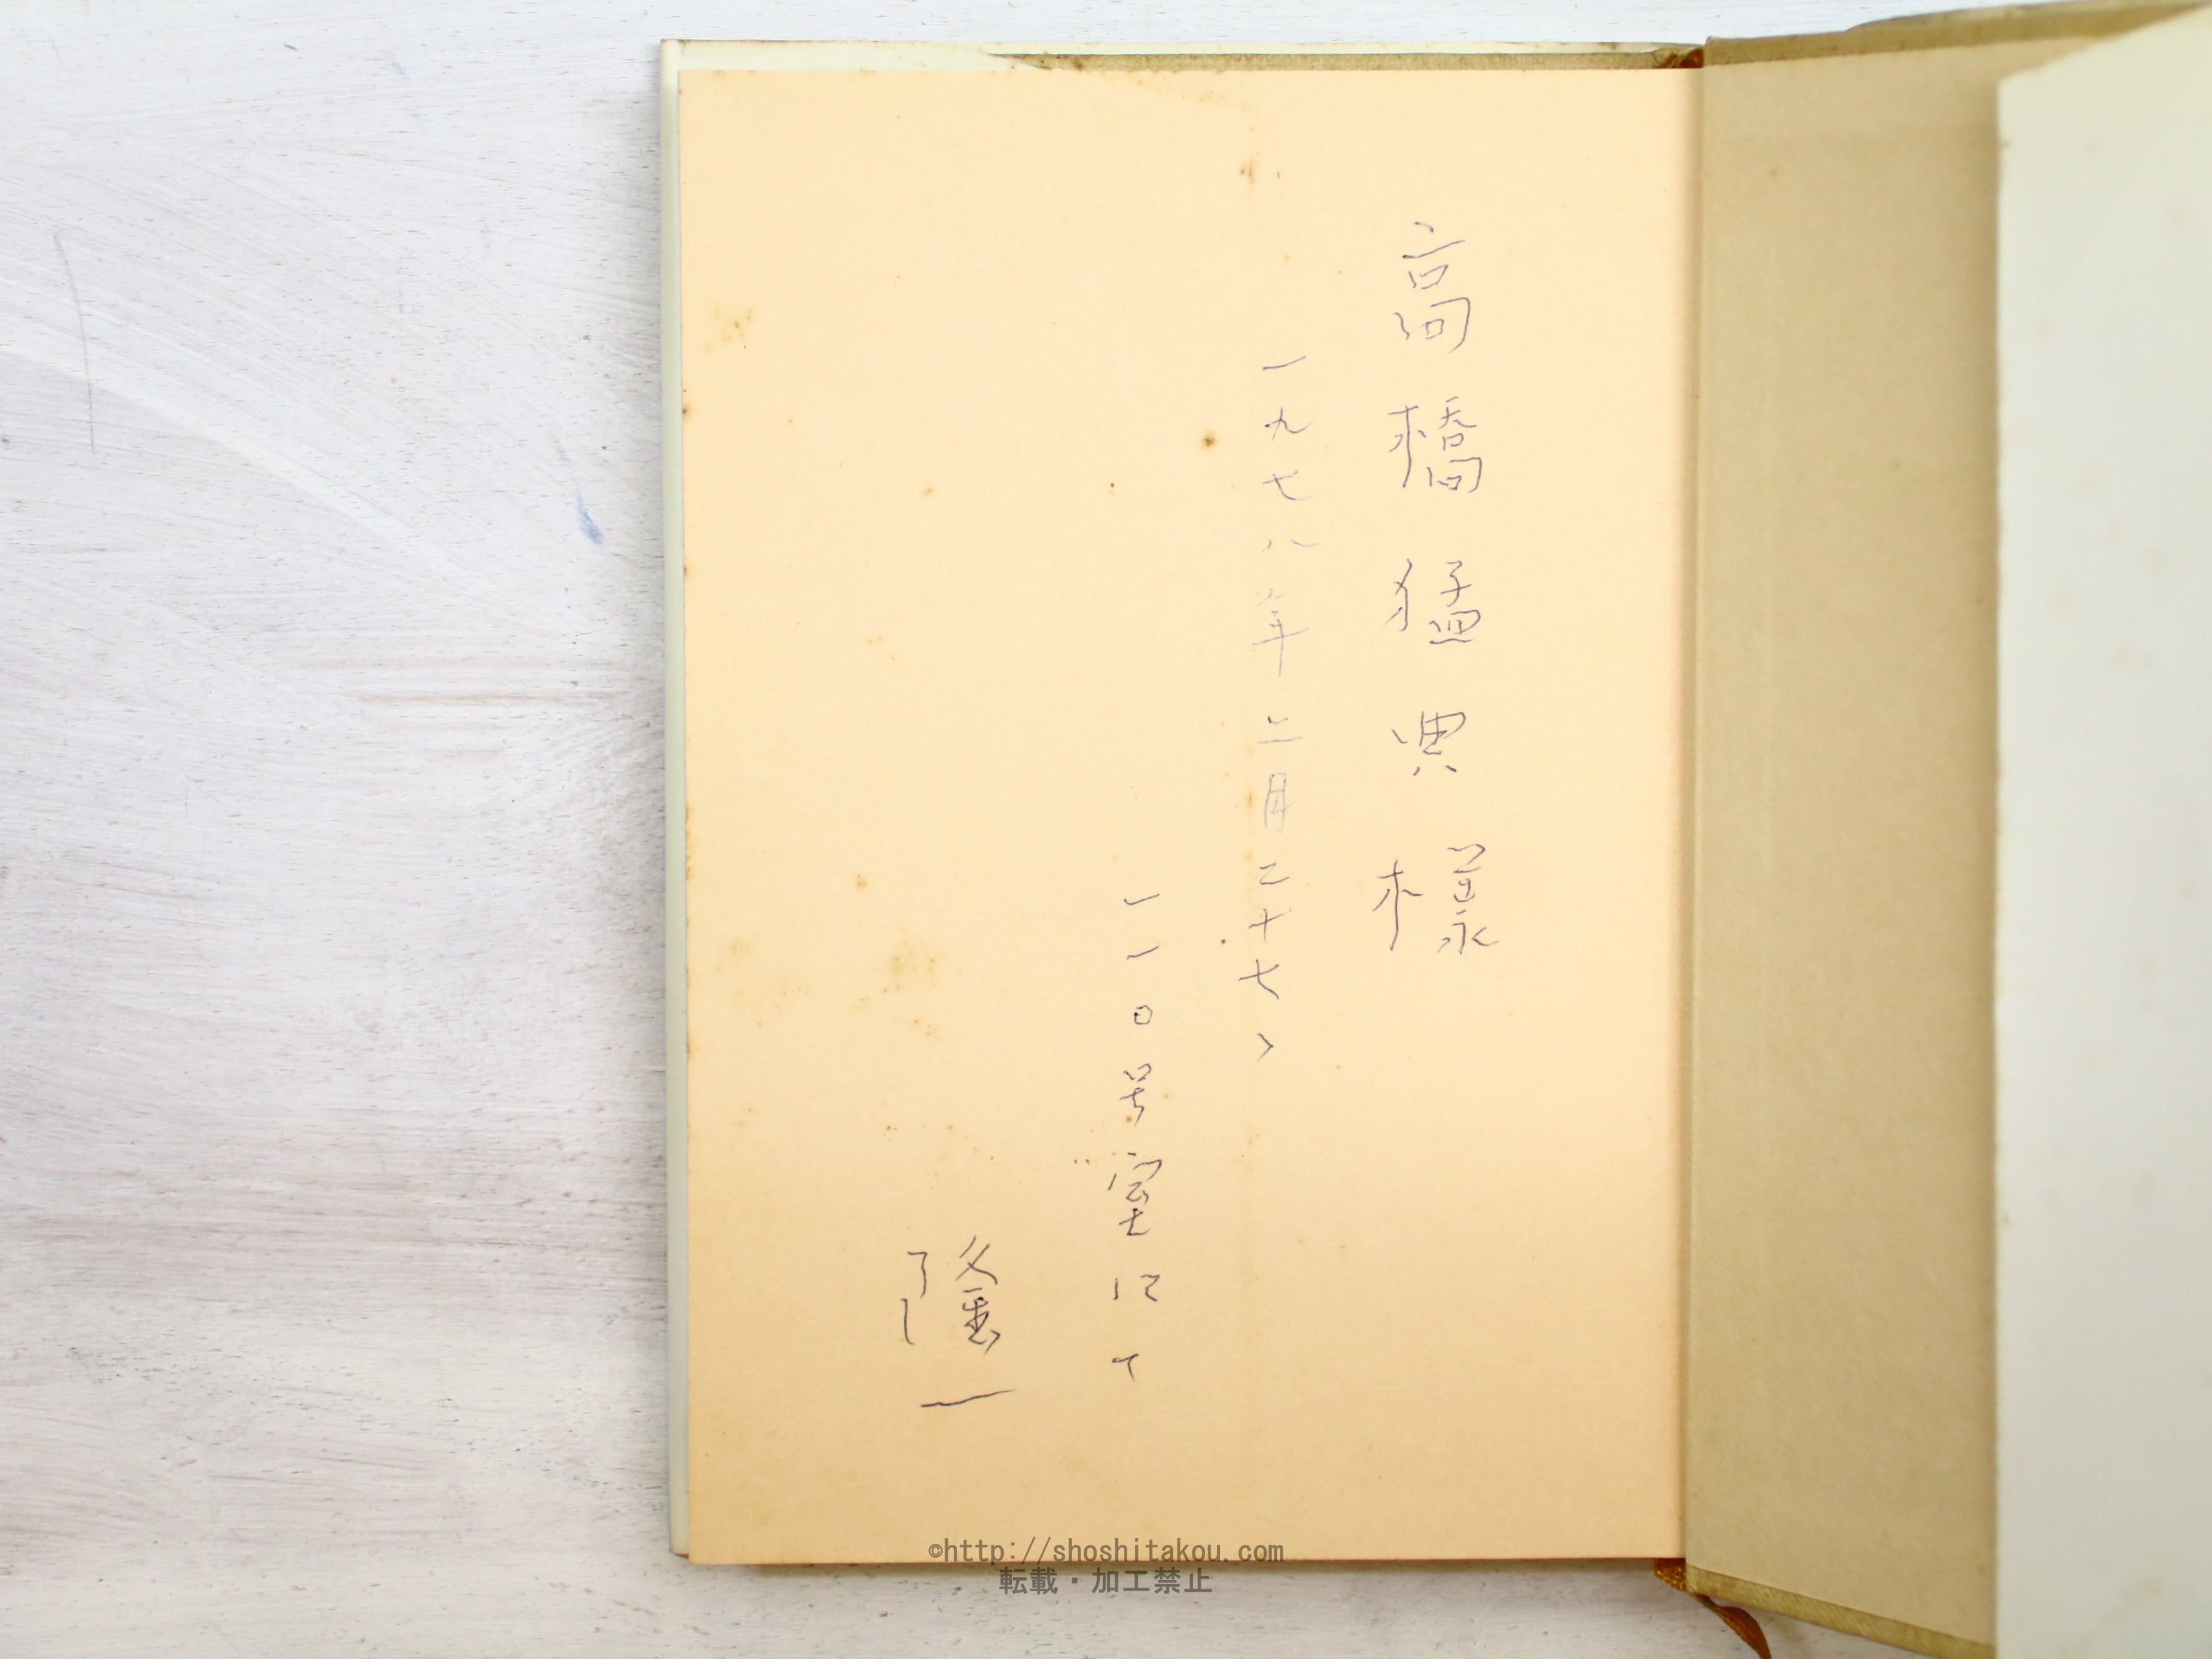 高橋猛典様
一九七八年三月二十七、
一一〇号室にて
隆一
©http://shoshitakou.com
転載・加工禁止